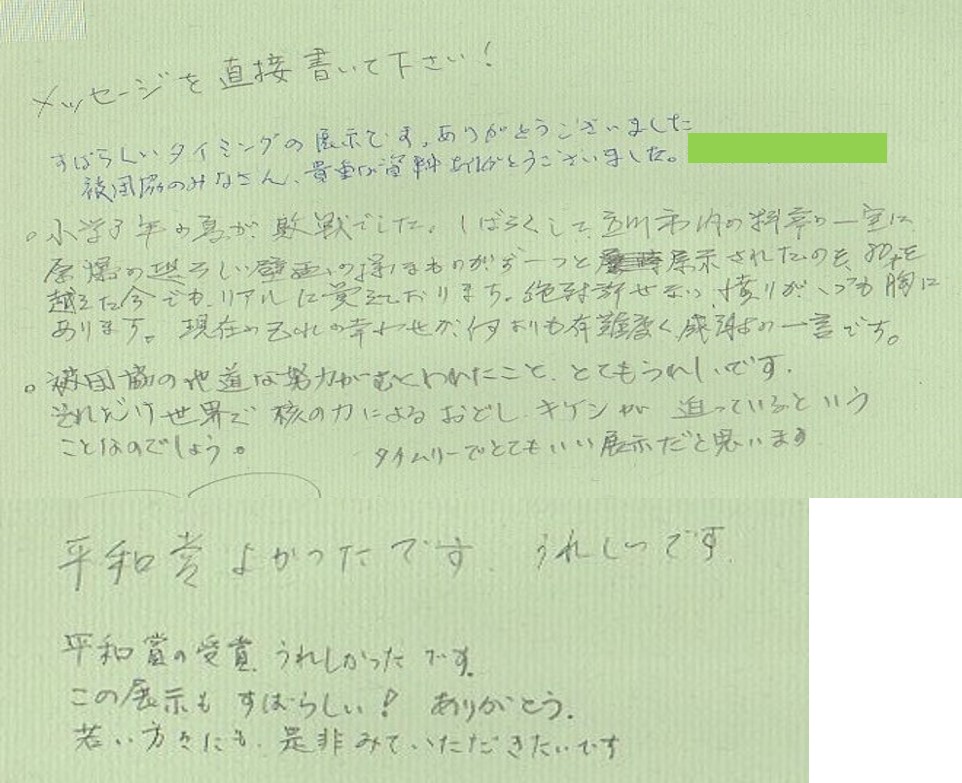 メッセージを直接書いて下さい!
すばらしいタイミングの展示です。ありがとうございました
被団協のみなさん、貴重な資料ありがとうございました。
。小学3年の夏が、敗戦でした。しばらくして、立川市内の料亭の一室に
原爆の恐ろしい壁画の様なものがずーっと展示されたのを、80才を
越えた今でも、リアルに覚えております。絶対許せない憤りが、いつも胸に
あります。現在の我れの幸わせが、何よりも有難く感謝の一言です。
。被団協の地道な努力がむくわれたこと、とてもうれしいです。
それだけ世界で核の力によるおどし、キケンが迫っているという
ことなのでしょう。
タイムリーでとてもいい展示だと思います
平和賞よかったです。うれしいです。
平和賞の受賞、うれしかったです。
この展示もすばらしい! ありがとう。
若い方々にも、是非みていただきたいです